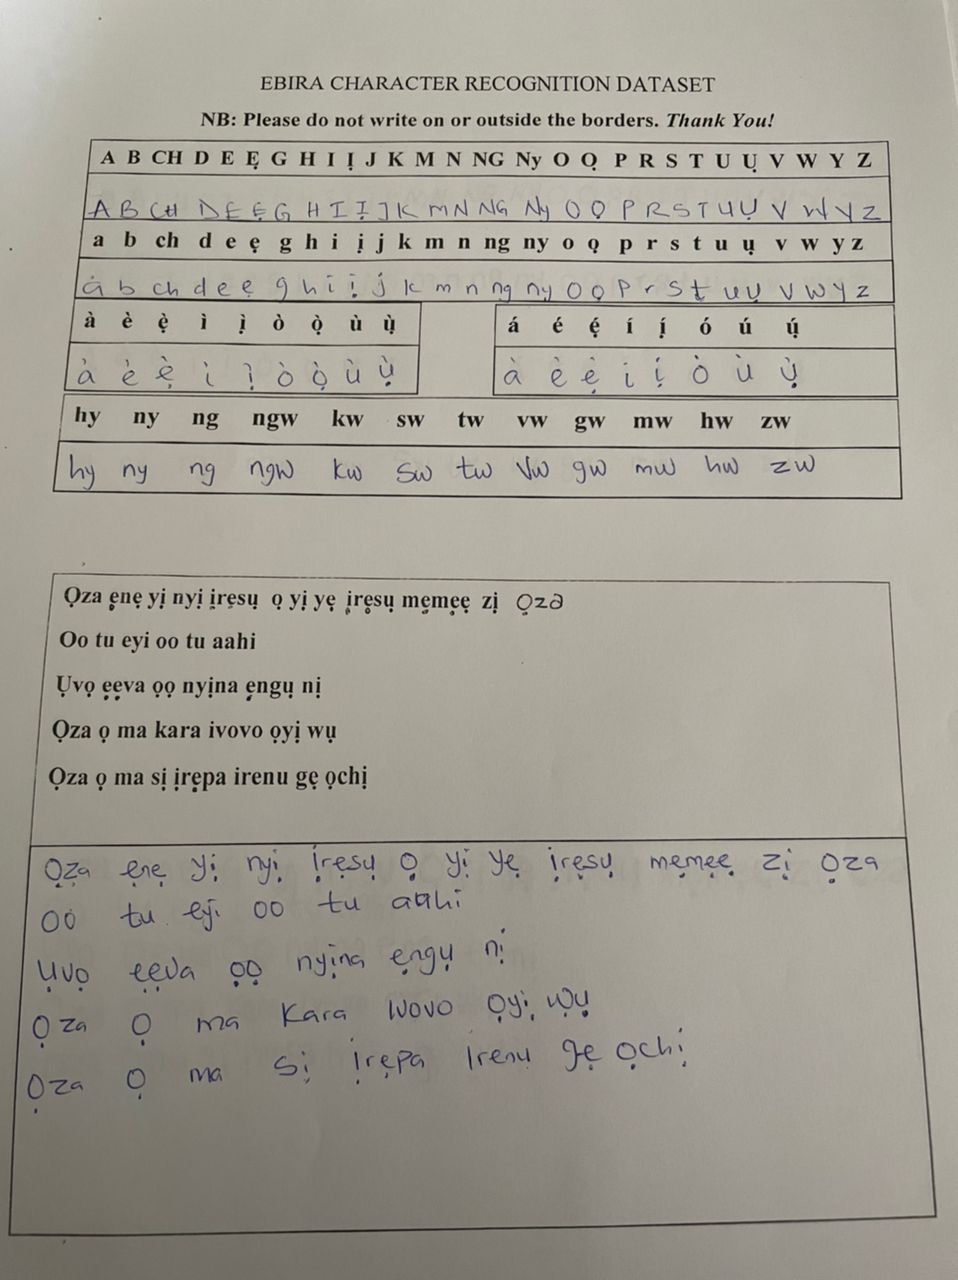 EBIRA CHARACTER RECOGNITION DATASET
NB: Please do not write on or outside the borders. Thank You!
A B CH D E Ẹ G H I Ị J K M N NG Ny O Ọ P R S T U Ụ V W Y Z
A B CH D E Ẹ G H I Ị J K m N NG Ny O Ọ P R S T U Ụ V W Y Z
a b ch d e ẹ g h i ị j k m n ng ny o ọ p r s t u ụ v w y z
a b ch d e ẹ g h i ị j k m n ng ny o ọ p r s t u ụ v w y z
à è ẹ̀ ì ị̀ ò ọ̀ ù ụ̀ á é ẹ́ í ị́ ó ú ụ́
à è ẹ̀ ì ị̀ ò ọ̀ ù ụ̀ à è ẹ̀ i ị ò ù ụ̀
hy ny ng ngw kw sw tw vw gw mw hw zw
hy ny ng ngw kw sw tw vw gw mw hw zw
Ọza ẹnẹ yị nyị ịrẹsụ ọ yị yẹ ịrẹsụ mẹmẹẹ zị Ọza
Oo tu eyi oo tu aahi
Ụvọ ẹẹva ọọ nyịna ẹngụ nị
Ọza ọ ma kara ivovo ọyị wụ
Ọza ọ ma sị ịrẹpa irenu gẹ ọchị
Ọzạ ẹnẹ yị nyị ịrẹsụ Ọ yị yẹ ịrẹsụ mẹmẹẹ zị Ọza
OO tu eyi oo tu aahi
Ụvọ ẹẹva ọọ nyịna ẹngụ nị
Ọza Ọ ma Kara ivovo Ọyị wụ
Ọza Ọ ma Sị ịrẹpa irenu gẹ Ọchị